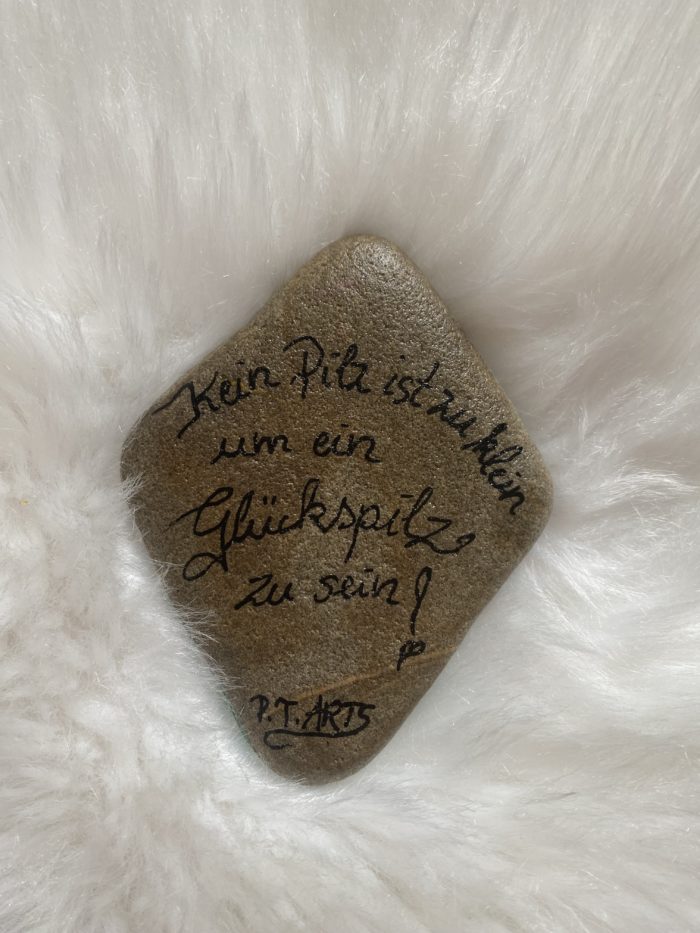 Kein Pilz ist zu klein
um ein
Glückspilz
zu sein!
P.T. ARTS